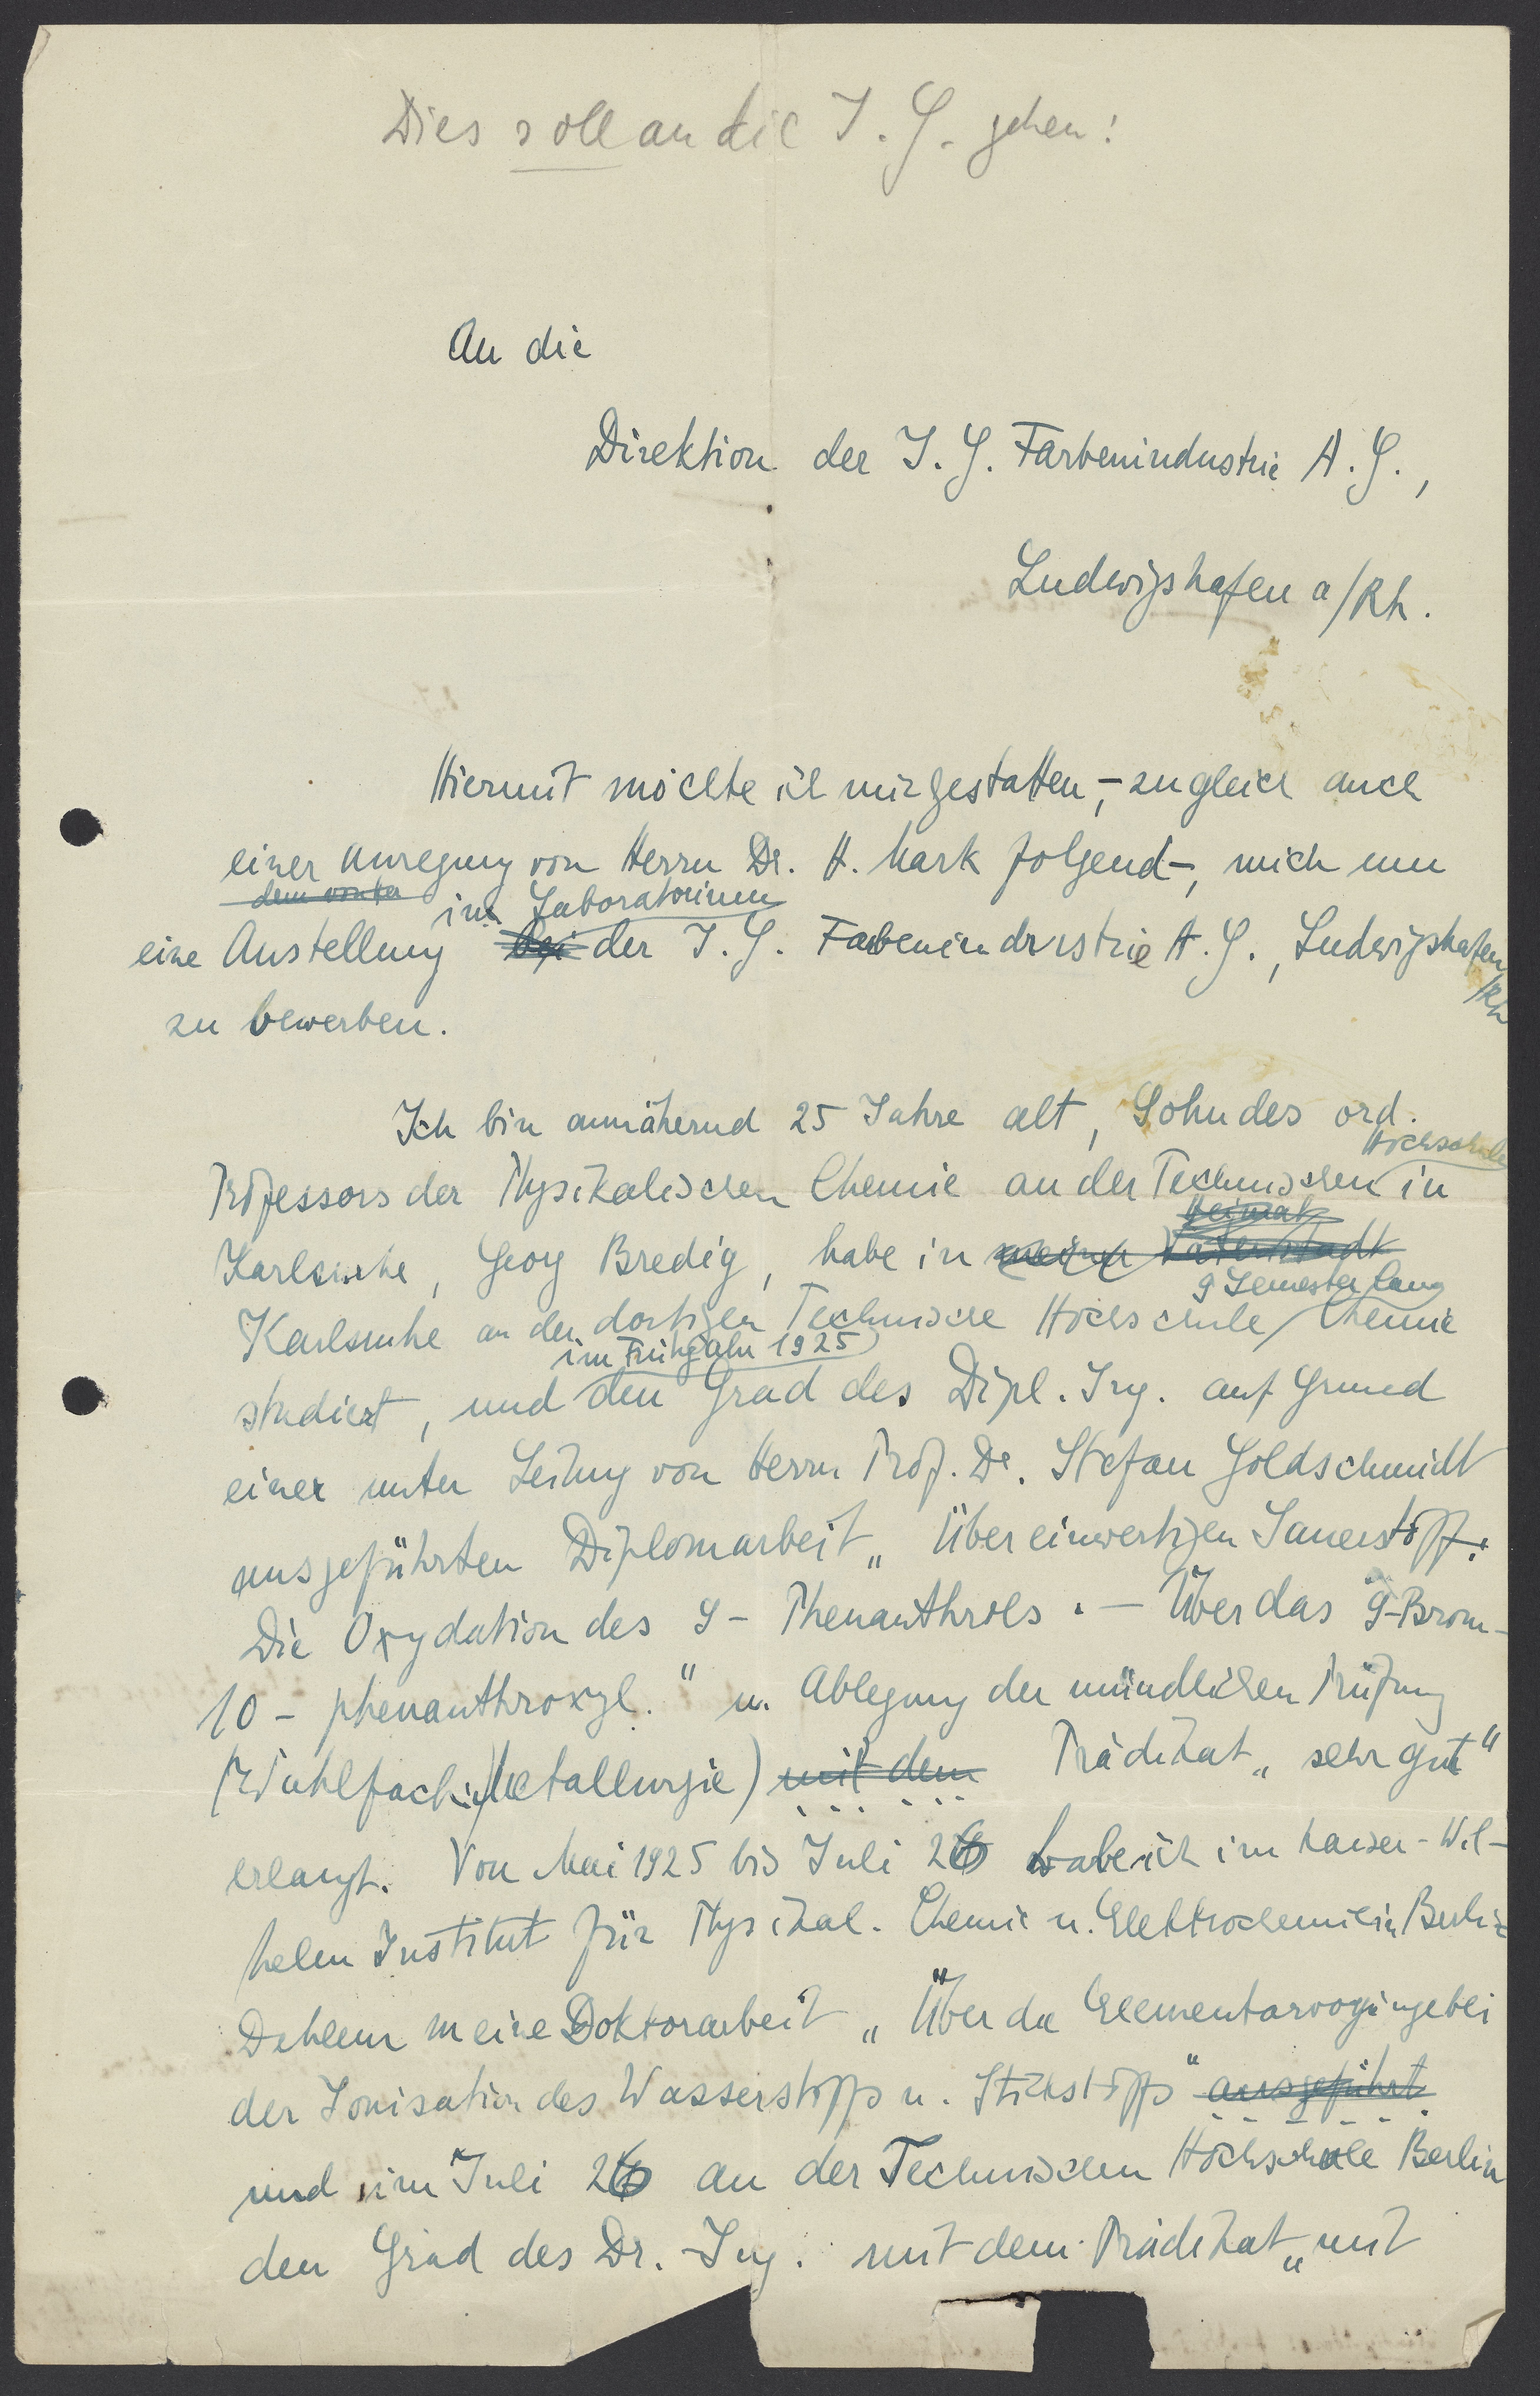 Dies soll an die I. G. gehen!
An die
Direktion der I. G. Farbenindustrie A. G.,
Ludwigshafen a/Rh.
Hiermit möchte ich mir gestatten, - zugleich auch
einer Anregung von Herrn Dr. H. Mark folgend -, mich um
im Laboratorium
eine Anstellung bei der I. G. Farbenindustrie A. G., Ludwigshafen
/Rh
zu bewerben.
Ich bin annähernd 25 Jahre alt, Sohn des ord.
Hochschule
Professors der Physikalischen Chemie an der Technischen in
Heimat
Karlsruhe, Georg Bredig, habe in meiner Vaterstadt
9 Semester lang
Karlsruhe an der dortigen Technische Hochschule Chemie
im Frühjahr 1925
studiert, und den Grad des Dipl. Ing. auf Grund
einer unter Leitung von Herrn Prof. Dr. Stefan Goldschmidt
ausgeführten Diplomarbeit „Über einwertigen Sauerstoff:
Die Oxydation des 9-Phenanthrols. - Über das 9-Brom-
10-phenanthroxyl." u. Ablegung der mündlichen Prüfung
(Wahlfach: Metallurgie) mit dem Prädikat „sehr gut"
erlangt. Von Mai 1925 bis Juli 26 habe ich im Kaiser-Wil-
helm Institut für Physikal. Chemie u. Elektrochemie in Berlin
Dahlem meine Doktorarbeit „Über die Elementarvorgänge bei
der Ionisation des Wasserstoffs u. Stickstoffs" ausgeführt
und im Juli 26 an der Technischen Hochschule Berlin
den Grad des Dr.-Ing. mit dem Prädikat „mit